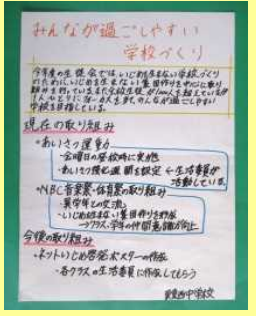 みんなが過ごしやすい
学校づくり
今年度の生徒会では、いじめを生まない学校づくり
のために、いじめを生まない集団作りを中心に取り
組みを行っています。全校生徒が1000人を超えているが
一人ひとりに
みんなが過ごしやすい
学校を目指している。
現在の取り組み
・あいさつ運動
→金曜日の登校時に実施
・あいさつ強化週間を設定 ← 生活委員が
活動している。
・NBC音楽祭・体育祭の取り組み
・異学年との交流
・いじめを生まない集団作りを
→クラス、学年の仲間意識が向上
今後の取り組み
・ネットいじめ啓発ポスターの作成
・各クラスの生活委員に作成してもらう
西中学校